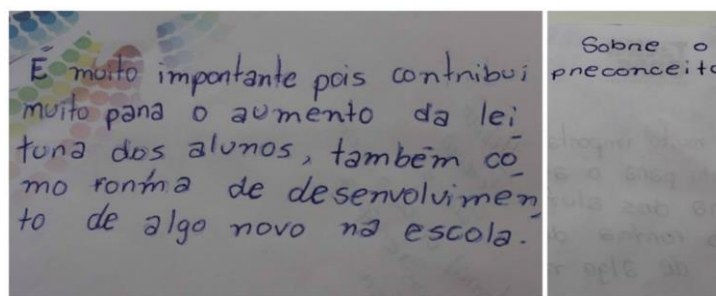 É muito importante pois contribui
muito para o aumento da lei
tura dos alunos, também co
mo forma de desenvolvimen
to de algo novo na escola.
Sobre o
preconceito